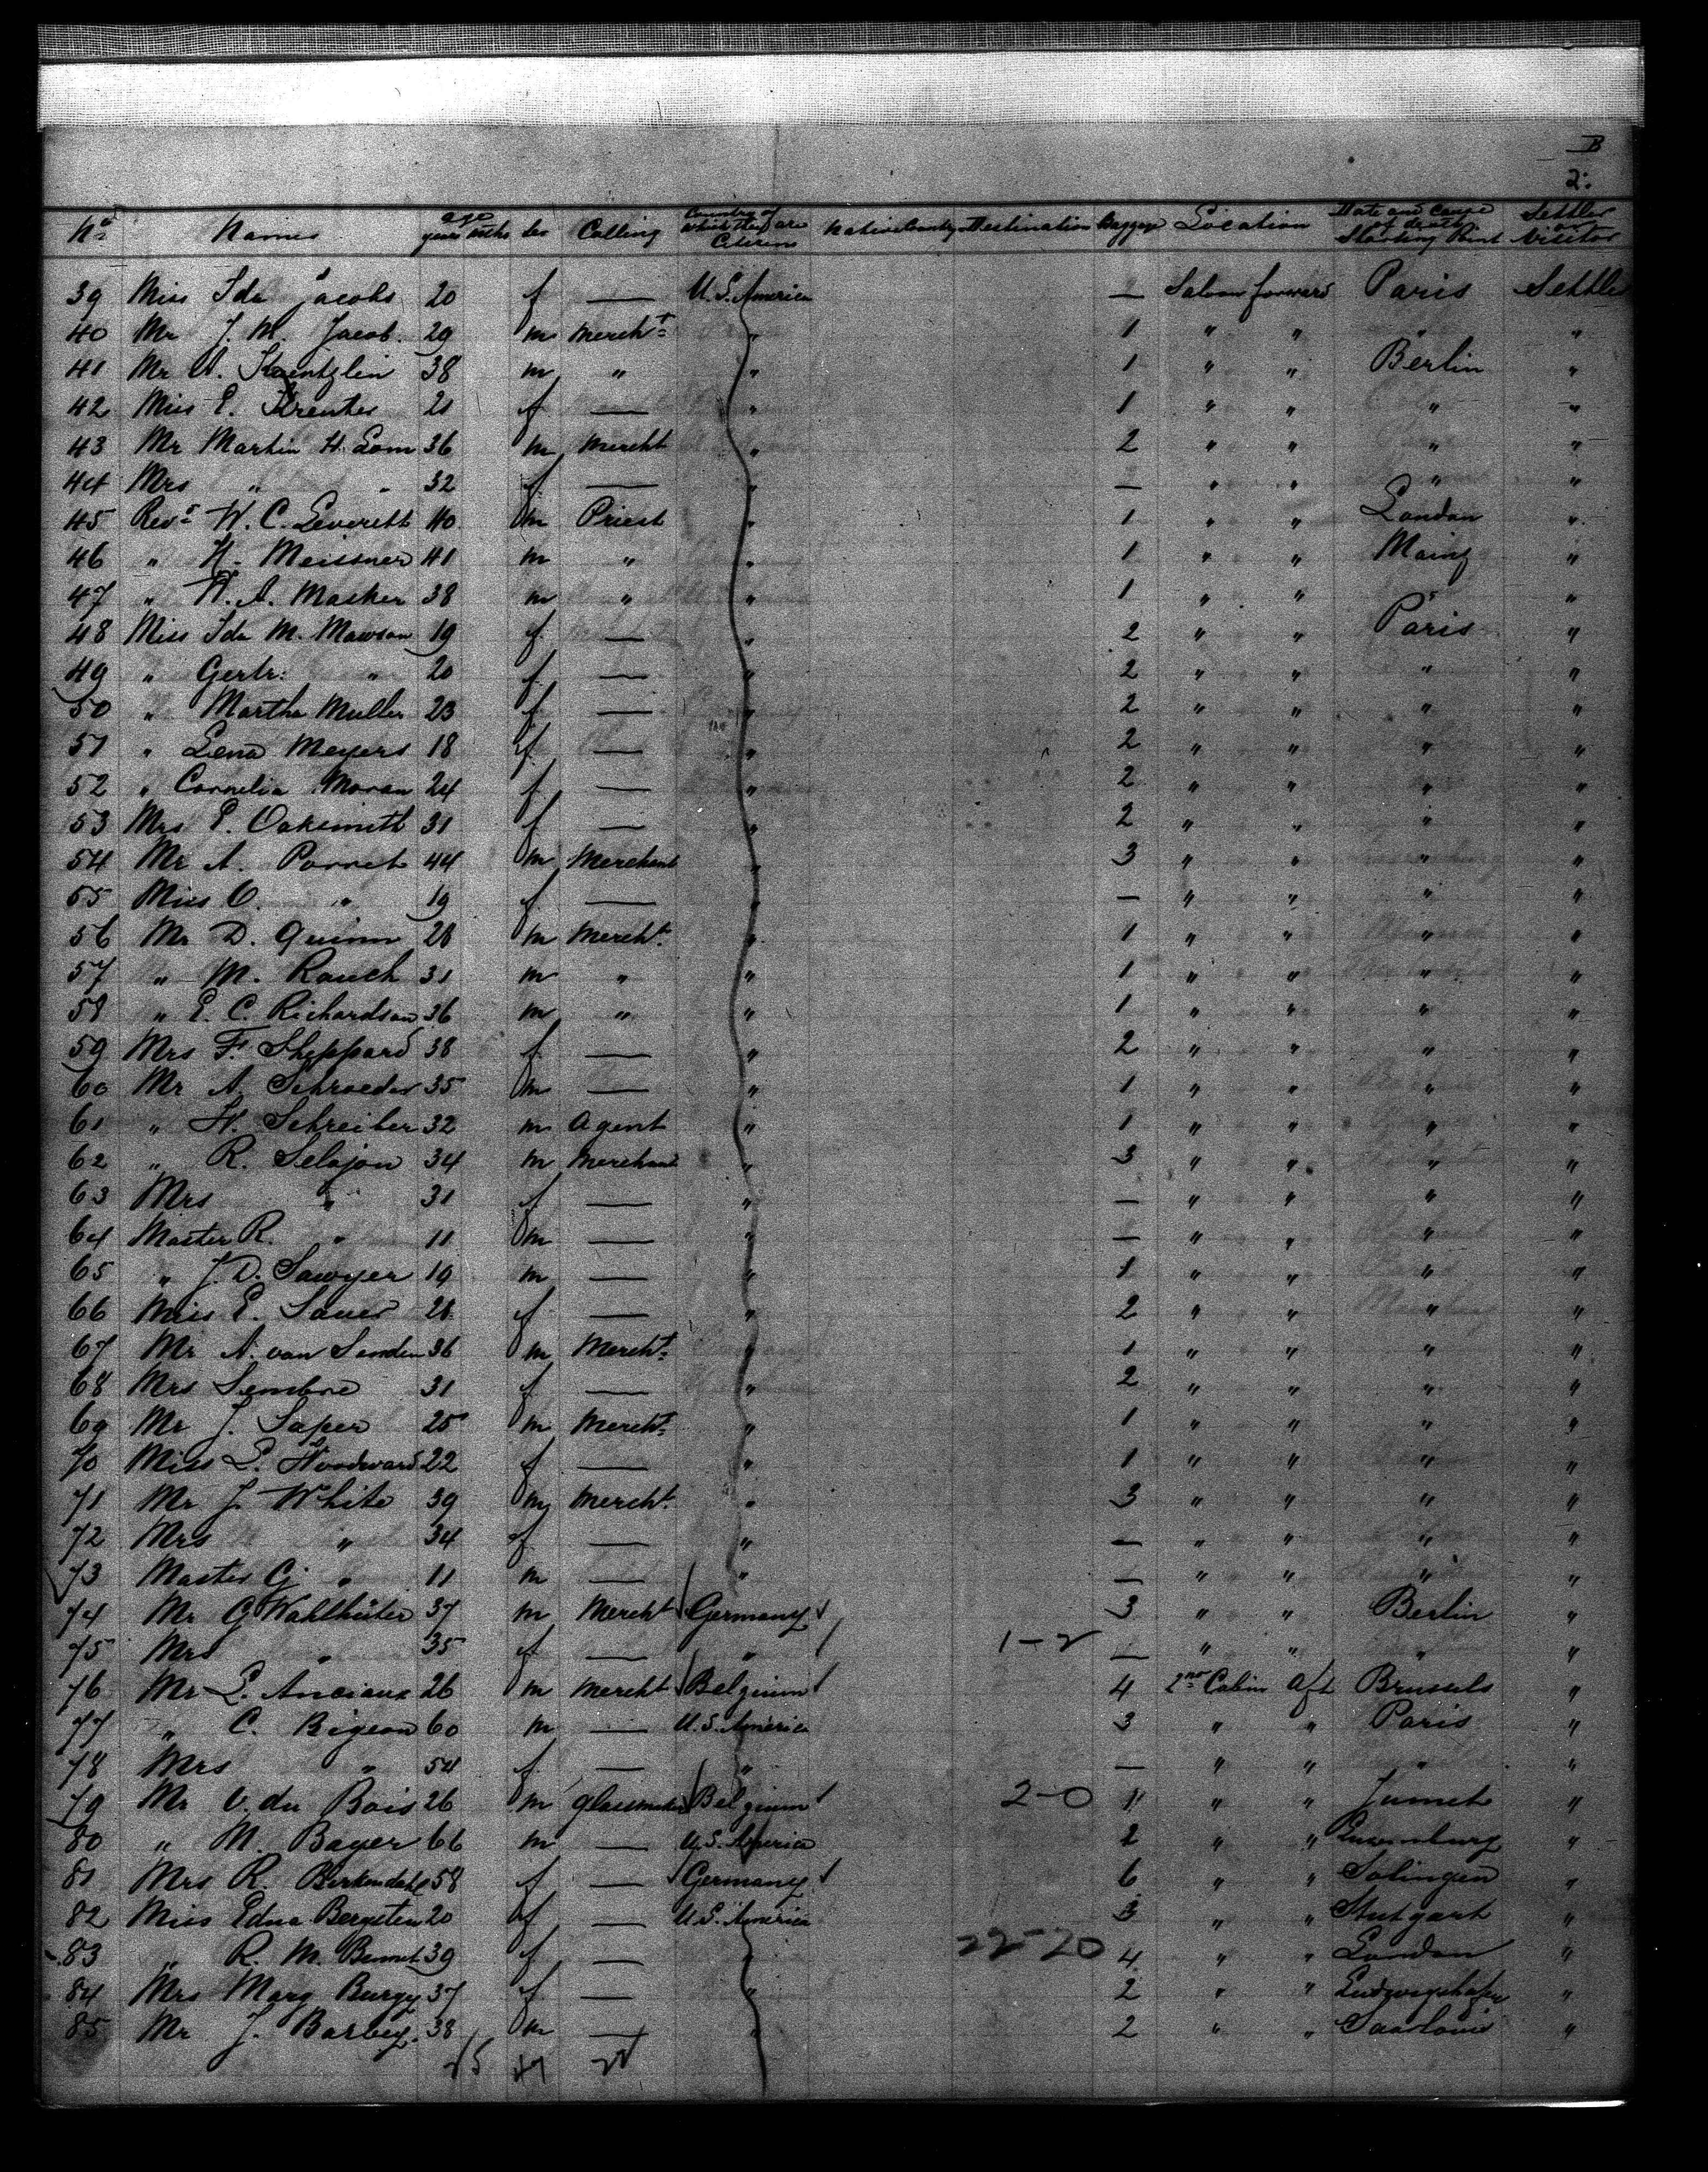 B
2.
No Names age years mths sex Calling Country of which they are Citizens Native Country Destination Baggage Location Date and Cause of death Starting Point Settler or Visitor
39 Miss Ida Jacobs 20 f — U.S. America — Saloon forward Paris Settler
40 Mr J. M. Jacob. 29 m Mercht " 1 " " " "
41 Mr A. 38 m " " 1 " " Berlin "
42 Miss E. 21 f — " 1 " " " "
43 Mr Martin H. 36 m Mercht " 2 " " " "
44 Mrs " " 32 f — " — " " " "
45 Revd W. C. Leverett 40 m Priest " 1 " " London "
46 " H. Meissner 41 m " " 1 " " Mainz "
47 " W. A. Masker 38 m " " 1 " " " "
48 Miss Ida M. Mawson 19 f — " 2 " " Paris "
49 " Gertr: " 20 f — " 2 " " " "
50 " Martha Muller 23 f — " 2 " " " "
51 " Lena Meyers 18 f — " 2 " " " "
52 " Cornelia Moran 24 f — " 2 " " " "
53 Mrs E. Oaksmith 31 f — " 2 " " " "
54 Mr A. Porret 44 m Merchant " 3 " " " "
55 Miss O. " 19 f — " — " " " "
56 Mr D. Quinn 28 m Mercht. " 1 " " " "
57 " M. Rauch 31 m " " 1 " " " "
58 " E. C. Richardson 36 m " " 1 " " " "
59 Mrs F. Sheppard 38 f — " 2 " " " "
60 Mr A. Schroeder 35 m — " 1 " " " "
61 " H. Schreiber 32 m Agent " 1 " " " "
62 " R. Selojon 34 m Merchant " 3 " " " "
63 Mrs " 31 f — " — " " " "
64 Master R. " 11 m — " — " " " "
65 " J. D. Sawyer 19 m — " 1 " " " "
66 Miss E. Sauer 28 f — " 2 " " " "
67 Mr A. van Senden 36 m Mercht. " 1 " " " "
68 Mrs 31 f — " 2 " " " "
69 Mr J. Saper 25 m Mercht. " 1 " " " "
70 Miss L. Woodward 22 f — " 1 " " " "
71 Mr J. White 39 m Mercht. " 3 " " " "
72 Mrs " 34 f — " — " " " "
73 Master G. " 11 m — " — " " " "
74 Mr G. Wahlhüter 37 m Mercht Germany 3 " " Berlin "
75 Mrs " 35 f — " 1-2 — " " " "
76 Mr L. Anciaux 26 m Mercht Belgium 4 2nd Cabin Aft Brussels "
77 " C. Bigeon 60 m — U.S. America 3 " " Paris "
78 Mrs " 54 f — " — " " " "
79 Mr V. du Bois 26 m glassmaker Belgium 2-0 1 " " Jumet "
80 " M. Bayer 66 m — U.S. America 2 " " Luxemburg "
81 Mrs R. Birkendahl 58 f — Germany 6 " " Solingen "
82 Miss Edna Bergsten 20 f — U.S. America 3 " " Stutgart "
83 " R. M. Bennet 39 f — " 22-20 4 " " London "
84 Mrs Marg Burgy 37 f — " 2 " " Ludwigshafen "
85 Mr J. Barbey. 38 m — " 2 " " Saarlouis "